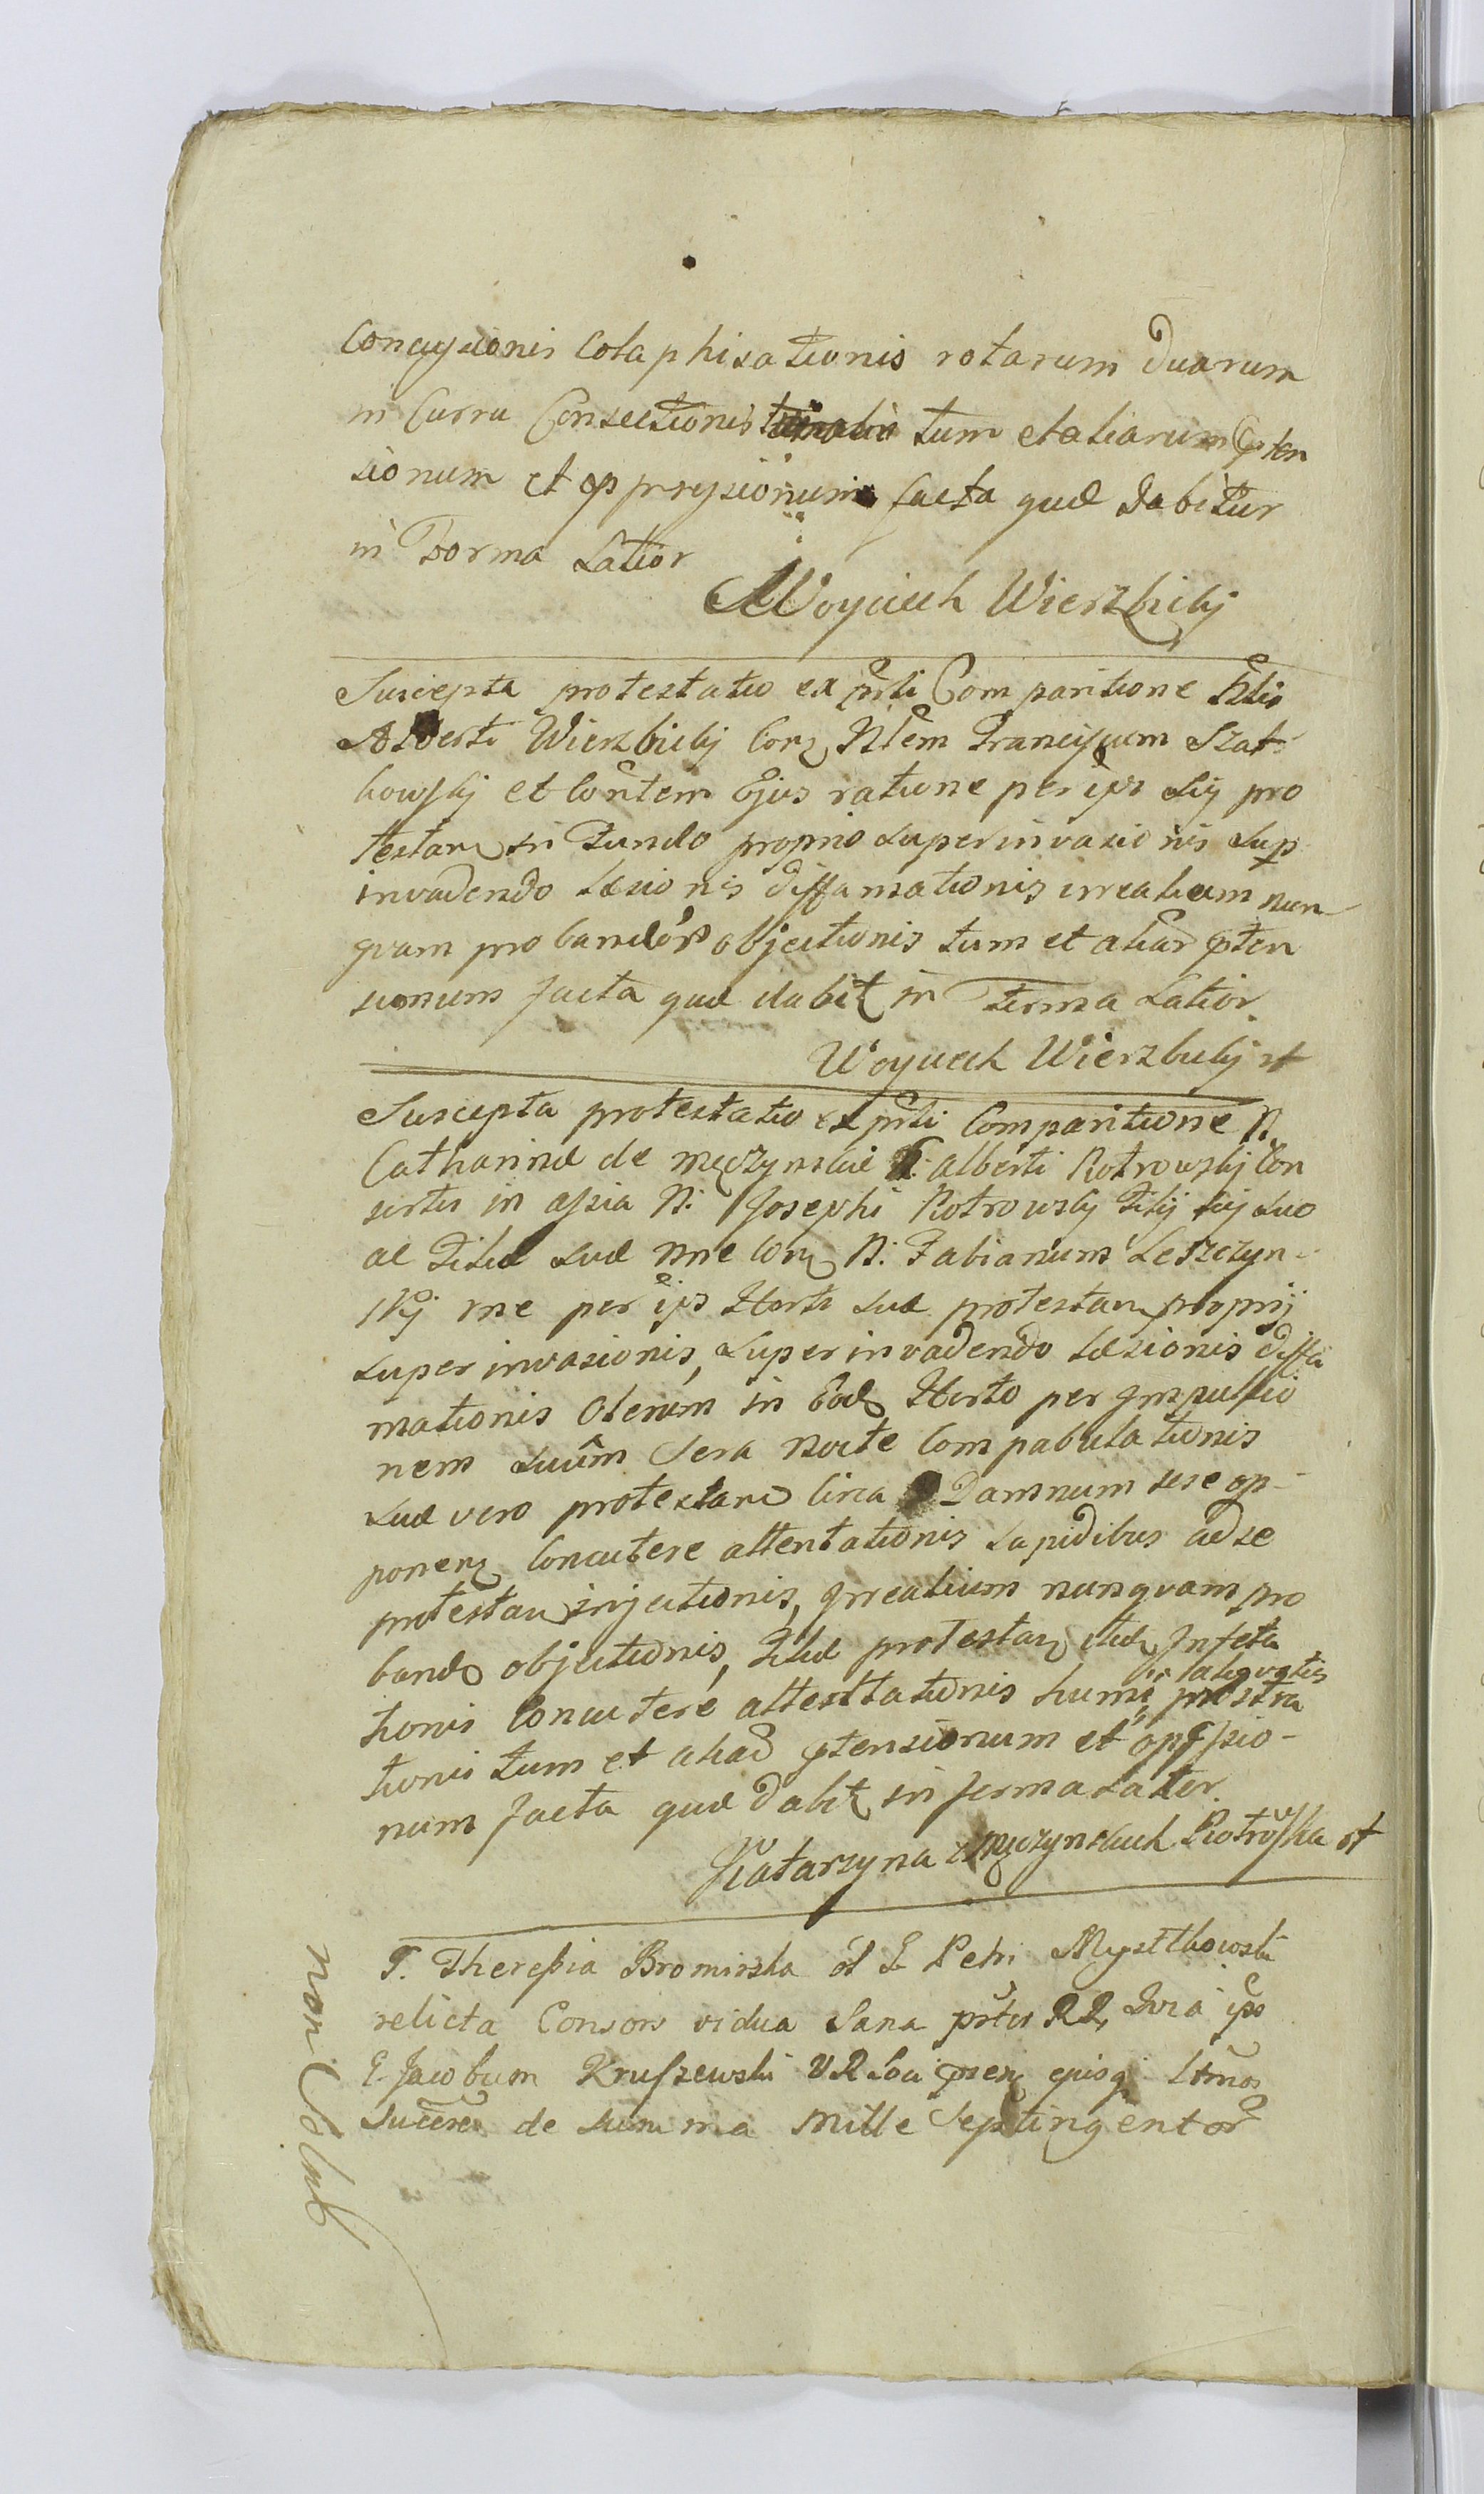 Concussionis Colaphisationis rotarum duarum
in Curru Consectionis tum et aliarum pten
sionum et oppressionum facta quæ dabitur
in Forma Latior
Woyciech Wierzbicky
Suscepta protestatio ex prsti Comparitione Nlis
Alberti Wierzbicky Cora Nlem Franciscum Szat-
kowsky et Contem Ejus ratione per ips sui pro
testan in Fundo proprio superinvasionis sup
invadendo læsionis diffamationis irrealium nun-
quam probandor objectionis tum et aliar pten
sionum facta quæ dabit in Forma Latior.
Woyciech Wierzbicky st
Suscepta protestatio ex prsti Comparitione N.
Catharinæ de Męczynskie N. Alberti Piotrowsky Con
sortis in assia N: Josephi Piotrowsky Filij sui suo
ac Filiæ suæ nne Cora N: Fabianum Leszczyn-
sky rne per ips Horti suæ protestan proprij
superinvasionis, superinvadendo læsionis diffa
mationis Olerum in Eod Horto per Impulsio
nem suum sera nocte Compabulationis
suæ vero protestan circa Damnum sese op-
ponen Concutere attentationis Lapidibus ad se
protestan injectionis, Irrealium nunquam pro
band objectionis, Filiæ protestan
tionis Concutere attentationis humi prostra
tionis tum et aliar ptensionum et oppssio-
num facta quæ dabit in forma Latior.
Katarzyna z Męczynskich Piotrowska st
G. Theressia Bromirska ol G Petri Mystkowski
relicta Consors vidua Sana prstis RR, Jura ips
G Jacobum Krussewski VR Loci psen ejusq Ltimos
Succres de summa Mille Septingentor
non Solut